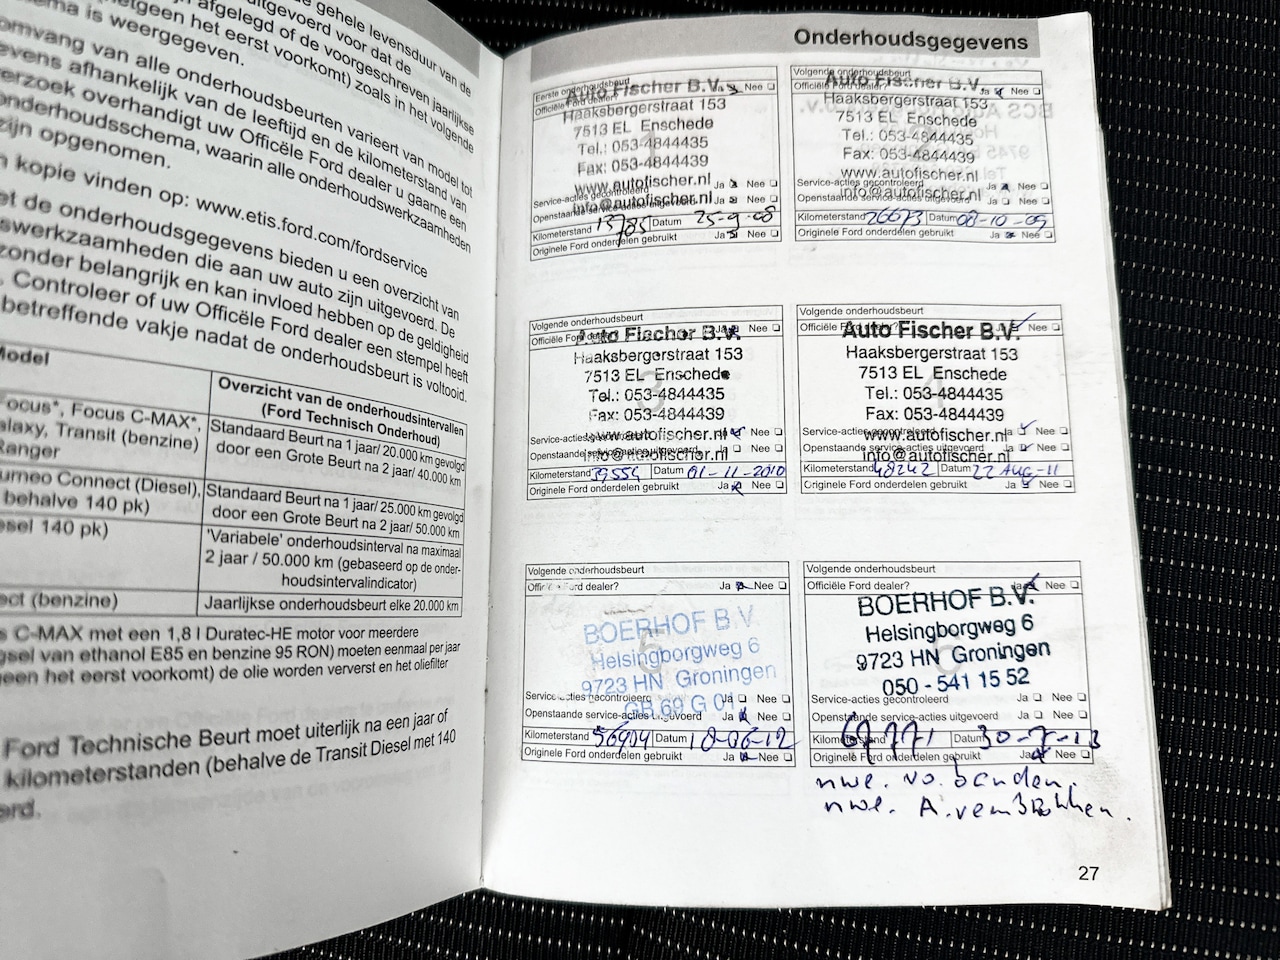 gehele levensduur van de
uitgevoerd voor dat de
afgelegd of de voorgeschreven jaarlijkse
hetgeen het eerst voorkomt) zoals in het volgende
is weergegeven.
omvang van alle onderhoudsbeurten varieert van model tot
afhankelijk van de leeftijd en de kilometerstand van
verzoek overhandigt uw Officiële Ford dealer u gaarne een
onderhoudsschema, waarin alle onderhoudswerkzaamheden
zijn opgenomen.
kopie vinden op: www.etis.ford.com/fordservice
de onderhoudsgegevens bieden u een overzicht van
werkzaamheden die aan uw auto zijn uitgevoerd. De
zonder belangrijk en kan invloed hebben op de geldigheid
. Controleer of uw Officiële Ford dealer een stempel heeft
betreffende vakje nadat de onderhoudsbeurt is voltooid.
Model
Overzicht van de onderhoudsintervallen
(Ford Technisch Onderhoud)
Focus*, Focus C-MAX*,
Galaxy, Transit (benzine)
Ranger
Standaard Beurt na 1 jaar/ 20.000 km gevolgd
door een Grote Beurt na 2 jaar/ 40.000 km
Tourneo Connect (Diesel),
behalve 140 pk)
Standaard Beurt na 1 jaar/ 25.000 km gevolgd
door een Grote Beurt na 2 jaar/ 50.000 km
140 pk)
'Variabele' onderhoudsinterval na maximaal
2 jaar / 50.000 km (gebaseerd op de onder-
houdsintervalindicator)
(benzine)
Jaarlijkse onderhoudsbeurt elke 20.000 km
C-MAX met een 1,8 l Duratec-HE motor voor meerdere
van ethanol E85 en benzine 95 RON) moeten eenmaal per jaar
het eerst voorkomt) de olie worden ververst en het oliefilter
Ford Technische Beurt moet uiterlijk na een jaar of
kilometerstanden (behalve de Transit Diesel met 140
Onderhoudsgegevens
Eerste onderhoudsbeurt
Officiële Ford dealer? Ja Nee
Auto Fischer B.V.
Haaksbergerstraat 153
7513 EL Enschede
Tel.: 053-4844435
Fax: 053-4844439
www.autofischer.nl
info@autofischer.nl
Service-acties gecontroleerd Ja Nee
Openstaande service-acties uitgevoerd Ja Nee
Kilometerstand 13785 Datum 25-9-08
Originele Ford onderdelen gebruikt Ja Nee
Volgende onderhoudsbeurt
Officiële Ford dealer? Ja Nee
Auto Fischer B.V.
Haaksbergerstraat 153
7513 EL Enschede
Tel.: 053-4844435
Fax: 053-4844439
www.autofischer.nl
info@autofischer.nl
Service-acties gecontroleerd Ja Nee
Openstaande service-acties uitgevoerd Ja Nee
Kilometerstand 26673 Datum 08-10-09
Originele Ford onderdelen gebruikt Ja Nee
Volgende onderhoudsbeurt
Officiële Ford dealer? Ja Nee
Auto Fischer B.V.
Haaksbergerstraat 153
7513 EL Enschede
Tel.: 053-4844435
Fax: 053-4844439
www.autofischer.nl
info@autofischer.nl
Service-acties gecontroleerd Ja Nee
Openstaande service-acties uitgevoerd Ja Nee
Kilometerstand 39554 Datum 01-11-2010
Originele Ford onderdelen gebruikt Ja Nee
Volgende onderhoudsbeurt
Officiële Ford dealer? Ja Nee
Auto Fischer B.V.
Haaksbergerstraat 153
7513 EL Enschede
Tel.: 053-4844435
Fax: 053-4844439
www.autofischer.nl
info@autofischer.nl
Service-acties gecontroleerd Ja Nee
Openstaande service-acties uitgevoerd Ja Nee
Kilometerstand 48242 Datum 22 Aug-11
Originele Ford onderdelen gebruikt Ja Nee
Volgende onderhoudsbeurt
Officiële Ford dealer? Ja Nee
BOERHOF B.V.
Helsingborgweg 6
9723 HN Groningen
GR 69 G 01
Service-acties gecontroleerd Ja Nee
Openstaande service-acties uitgevoerd Ja Nee
Kilometerstand 56904 Datum 18-06-12
Originele Ford onderdelen gebruikt Ja Nee
Volgende onderhoudsbeurt
Officiële Ford dealer? Ja Nee
BOERHOF B.V.
Helsingborgweg 6
9723 HN Groningen
050 - 541 15 52
Service-acties gecontroleerd Ja Nee
Openstaande service-acties uitgevoerd Ja Nee
Kilometerstand 67771 Datum 30-7-13
Originele Ford onderdelen gebruikt Ja Nee
nwe. vo. banden.
nwe. A.
27